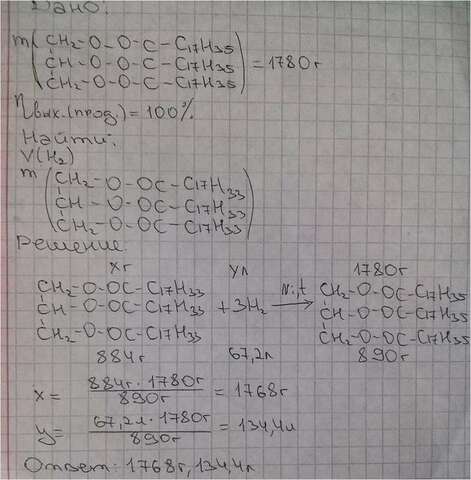 Дано:
m(CH₂-O-O-C-C₁₇H₃₅
CH-O-O-C-C₁₇H₃₅) = 1780г
CH₂-O-O-C-C₁₇H₃₅
ηвых.(прод.) = 100%
Найти:
V(H₂)
m(CH₂-O-OC-C₁₇H₃₃
CH-O-OC-C₁₇H₃₃)
CH₂-O-OC-C₁₇H₃₃
Решение
xг yл 1780г
CH₂-O-OC-C₁₇H₃₃ CH₂-O-OC-C₁₇H₃₅
CH-O-OC-C₁₇H₃₃ + 3H₂ →Ni,t CH-O-OC-C₁₇H₃₅
CH₂-O-OC-C₁₇H₃₃ CH₂-O-OC-C₁₇H₃₅
884г 67,2л 890г
x = 884г·1780г / 890г = 1768г
y = 67,2л·1780г / 890г = 134,4л
Ответ: 1768г, 134,4л